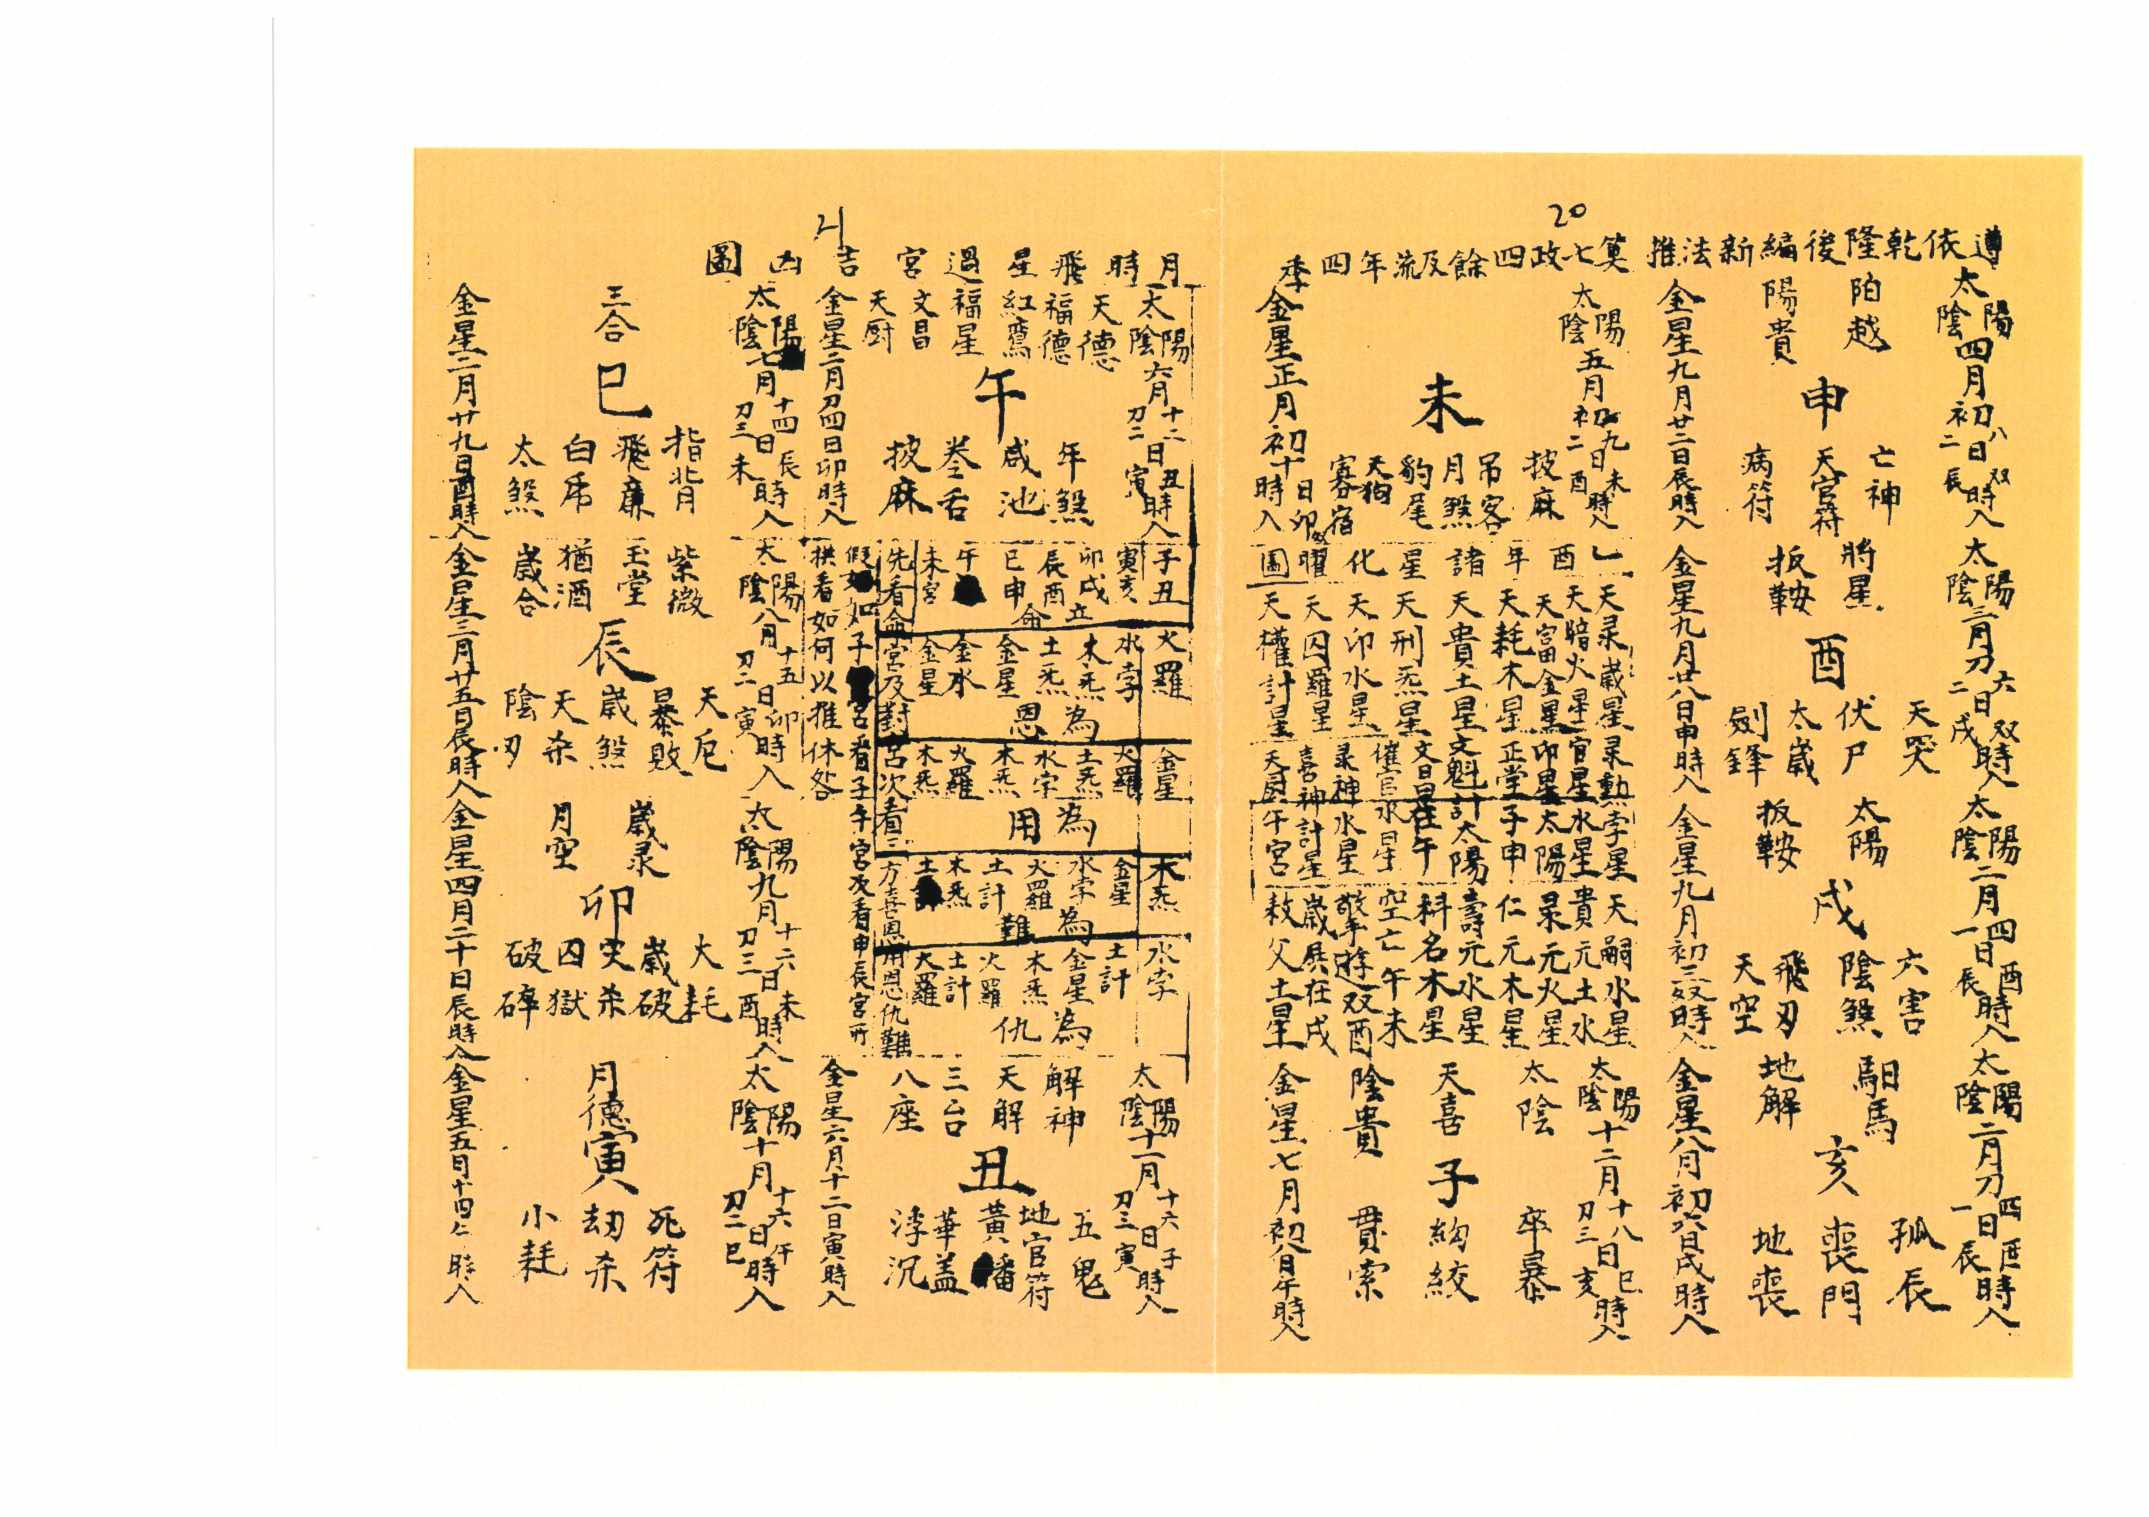 20
遵依乾隆後編新法推
筭七政四餘及流年四季
太陽
太陰
四月初八日
時入
陌越
陽貴
申
亡神
天官符
病符
金星九月廿二日辰時入
太陽
太陰
三月
六日
時入
將星
扳鞍
酉
天哭
伏尸
太歲
劍鋒
金星九月廿八日申時入
太陽
太陰
二月
四日酉
時入
太陽
扳鞍
戌
六害
陰煞
飛刃
天空
金星九月初三
時入
太陽
太陰
二月
四日
時入
馹馬
地解
亥
孤辰
喪門
地喪
金星八月初六日戌時入
太陽
太陰
五月初九日未
時入
未
披麻
吊客
月煞
豹尾
天狗
寡宿
金星正月初十日卯時入
乙酉年諸星化曜圖
天彔歲星彔勲孛星天嗣水星
天暗火星官星水星貴元土水
天富金星卯星太陽彔元火星
天耗木星正堂子申仁元木星
天貴土星文魁計太陽壽元水星
天刑炁星文昌在午科名木星
天印水星催官水星空亡午未
天囚羅星彔神水星
喜神計星
歲
在戌
天權計星天厨午宮
父土星
太陽
太陰
十二月十八日巳
時入
太陰
天喜
陰貴
子
卒暴
絞
貫索
金星七月初
日午時入
21
月時飛星過宮吉凶圖
太陽
太陰
六月十二日丑
時入
天德
福德
紅鸞
福星
文昌
天厨
午
年煞
咸池
卷舌
披麻
金星二月
四日卯時入
子丑
寅亥
卯戌立
辰酉
巳申命
午
未宮
火羅
水孛
木炁為
土炁
金星恩
金水
金星
金星
火羅
土炁為
水孛
木炁用
火羅
木炁
木炁
金星
水孛為
火羅
土計難
木炁
土計
水孛
土計
金星為
木炁
火羅仇
土計
火羅
先看命宮及對宮次看三
方喜恩用恩仇難
假如
如子
宮看子午宮次看申辰宮所
拱看如何以推休咎
太陽
太陰
十一月十六日子
時入
解神
天解
三台
八座
丑
五鬼
地官符
黃旛
華盖
浮沉
金星六月十二日寅時入
太陽
太陰
七月十四日辰
時入
三合
巳
指背
飛廉
白虎
太煞
金星二月廿九日酉時入
太陽
太陰
八月十五日卯
時入
紫微
玉堂
猶酒
歲合
辰
天厄
暴敗
歲煞
天杀
陰刃
金星三月廿五日辰時入
太陽
太陰
九月十六日未
時入
歲彔
月空
卯
大耗
歲破
災杀
囚獄
破碎
金星四月二十日辰時入
太陽
太陰
十月十六日午
時入
月德
寅
死符
劫杀
小耗
金星五月十四
時入